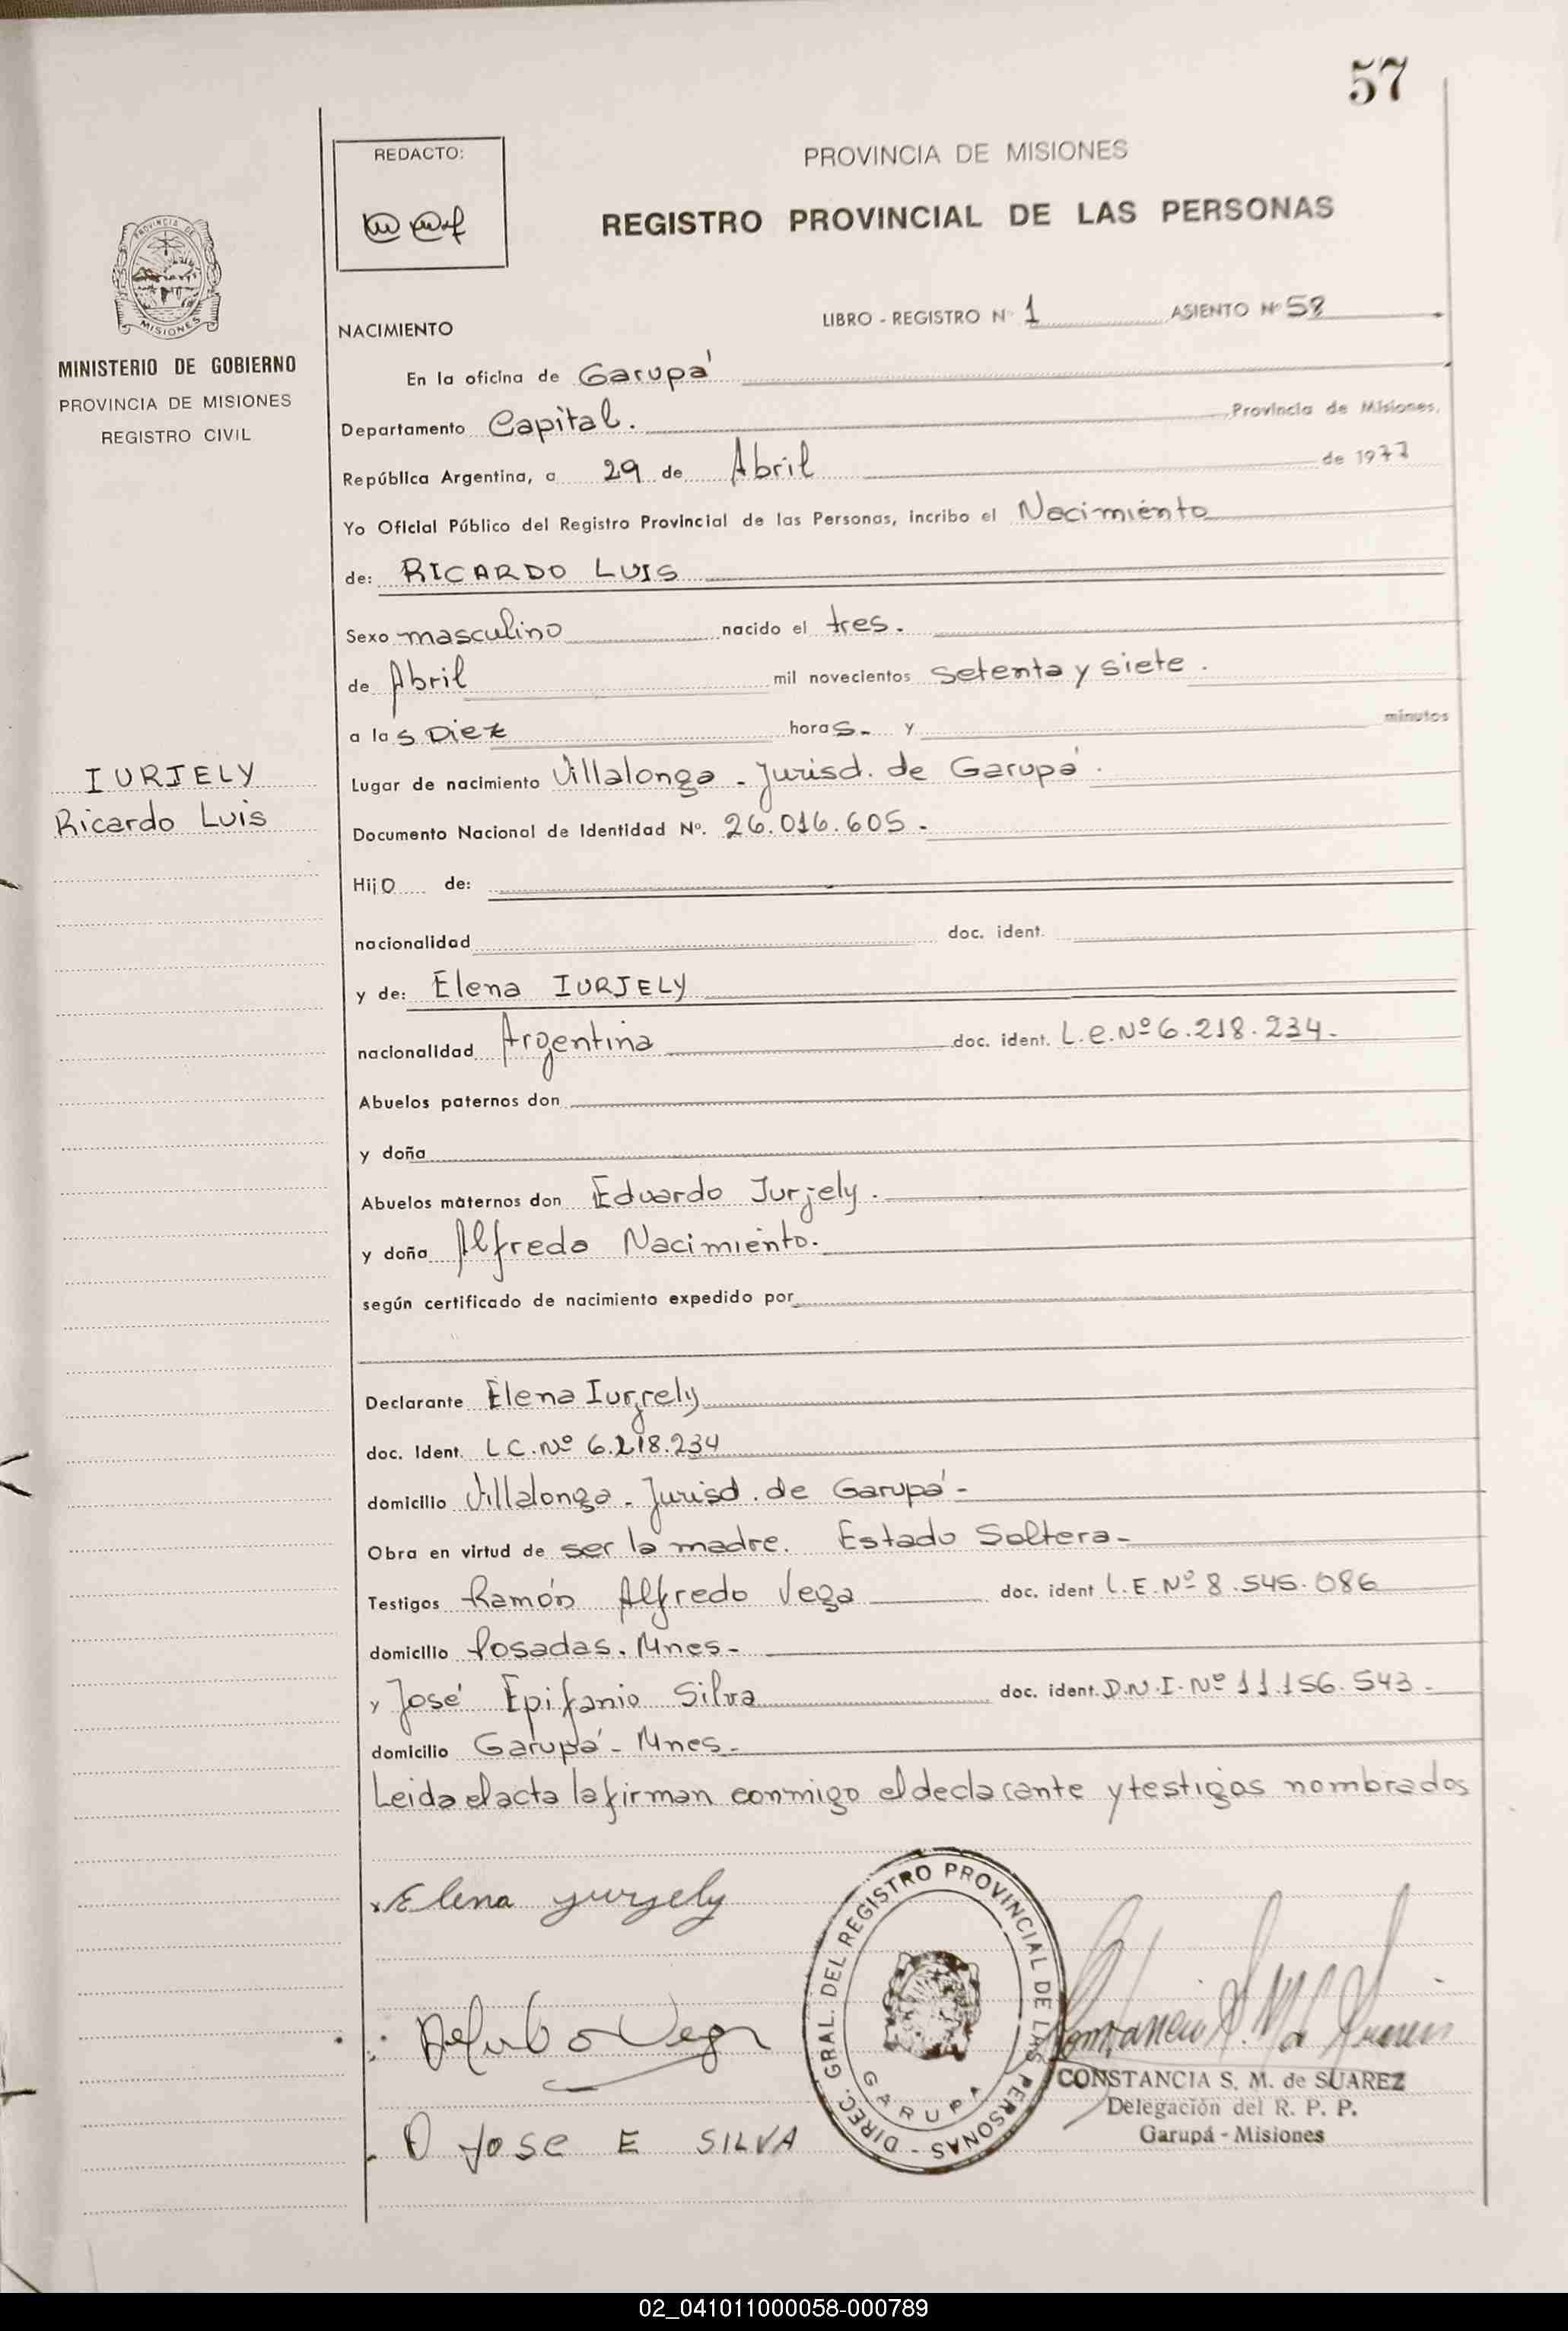 57
REDACTO:
PROVINCIA DE MISIONES
REGISTRO PROVINCIAL DE LAS PERSONAS
PROVINCIA DE
MISIONES
MINISTERIO DE GOBIERNO
PROVINCIA DE MISIONES
REGISTRO CIVIL
NACIMIENTO
LIBRO - REGISTRO Nº 1 ASIENTO Nº 58
En la oficina de Garupá
Departamento Capital. Provincia de Misiones,
República Argentina, a 29 de Abril de 1977
Yo Oficial Público del Registro Provincial de las Personas, incribo el Nacimiento
de: RICARDO LUIS
Sexo masculino nacido el tres.
de Abril mil novecientos setenta y siete.
a las Diez horas. y minutos
IURJELY
Ricardo Luis
Lugar de nacimiento Villalonga - Jurisd. de Garupá.
Documento Nacional de Identidad Nº. 26.016.605.-
Hijo de:
nacionalidad doc. ident.
y de: Elena IURJELY
nacionalidad Argentina doc. ident. L.C.Nº 6.218.234.-
Abuelos paternos don
y doña
Abuelos maternos don Eduardo Iurjely.
y doña Alfreda Nacimiento.
según certificado de nacimiento expedido por
Declarante Elena Iurjely
doc. Ident. L C. Nº 6.218.234
domicilio Villalonga - Jurisd. de Garupá -
Obra en virtud de ser la madre. Estado Soltera-
Testigos Ramón Alfredo Vega doc. ident L.E. Nº 8.545.086
domicilio Posadas. Mnes-
y José Epifanio Silva doc. ident. D.N.I. Nº 11.156.543.-
domicilio Garupá - Mnes.-
Leida el acta la firman conmigo el declarante y testigos nombrados
Elena yurjely
Vega
JOSE E SILVA
DIREC. GRAL. DEL REGISTRO PROVINCIAL DE LAS PERSONAS -
GARUPA
CONSTANCIA S. M. de SUAREZ
Delegación del R. P. P.
Garupá - Misiones
02_041011000058-000789